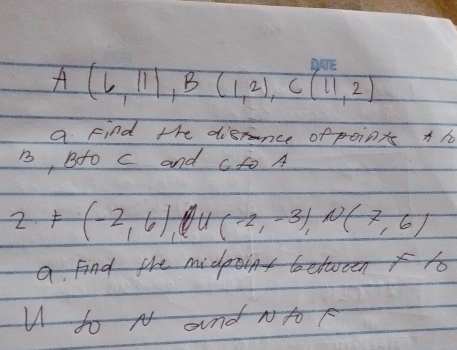 DATE
A (6, 11), B (1,2), C (11, 2)
a. Find the distance of points A to
B, B to C and C to A
2 F (-2, 6), U (-2, -3), N (7, 6)
a. Find the midpoint between F to
U to N and N to F